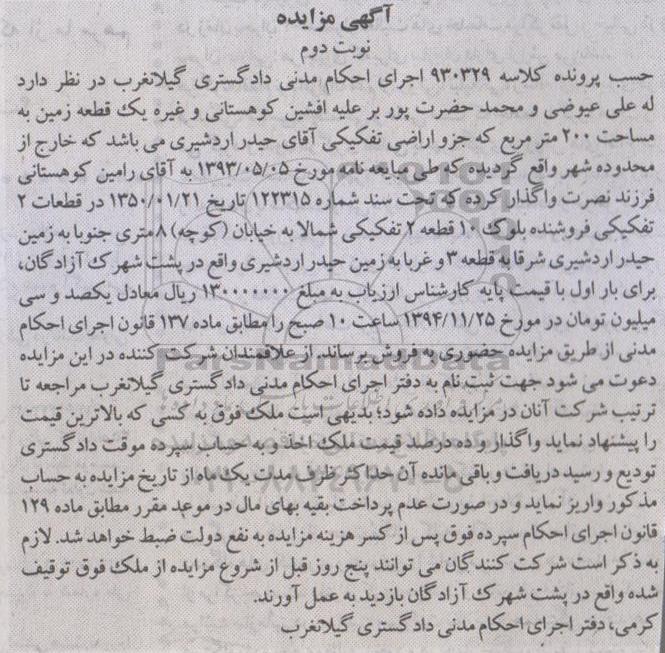 آگهی مزایده
نوبت دوم
حسب پرونده کلاسه ۹۳۰۳۲۹ اجرای احکام مدنی دادگستری گیلانغرب در نظر دارد
له علی عیوضی و محمد حضرت پور بر علیه افشین کوهستانی و غیره یک قطعه زمین به
مساحت ۲۰۰ متر مربع که جزو اراضی تفکیکی آقای حیدر اردشیری می باشد که خارج از
محدوده شهر واقع گردیده که طی مبایعه نامه مورخ ۱۳۹۳/۰۵/۰۵ به آقای رامین کوهستانی
فرزند نصرت واگذار کرده که تحت سند شماره ۱۲۲۳۱۵ تاریخ ۱۳۵۰/۰۱/۲۱ در قطعات ۲
تفکیکی فروشنده بلوک ۱۰ قطعه ۲ تفکیکی شمالا به خیابان (کوچه) ۸ متری جنوبا به زمین
حیدر اردشیری شرقا به قطعه ۳ و غربا به زمین حیدر اردشیری واقع در پشت شهرک آزادگان،
برای بار اول با قیمت پایه کارشناس ارزیاب به مبلغ ۱۳۰۰۰۰۰۰۰ ریال معادل یکصد و سی
میلیون تومان در مورخ ۱۳۹۴/۱۱/۲۵ ساعت ۱۰ صبح را مطابق ماده ۱۳۷ قانون اجرای احکام
مدنی از طریق مزایده حضوری به فروش برساند. از علاقمندان شرکت کننده در این مزایده
دعوت می شود جهت ثبت نام به دفتر اجرای احکام مدنی دادگستری گیلانغرب مراجعه تا
ترتیب شرکت آنان در مزایده داده شود؛ بدیهی است ملک فوق به کسی که بالاترین قیمت
را پیشنهاد نماید واگذار و ده درصد قیمت ملک اخذ و به حساب سپرده موقت دادگستری
تودیع و رسید دریافت و باقی مانده آن حداکثر ظرف مدت یک ماه از تاریخ مزایده به حساب
مذکور واریز نماید و در صورت عدم پرداخت بقیه بهای مال در موعد مقرر مطابق ماده ۱۲۹
قانون اجرای احکام سپرده فوق پس از کسر هزینه مزایده به نفع دولت ضبط خواهد شد. لازم
به ذکر است شرکت کنندگان می توانند پنج روز قبل از شروع مزایده از ملک فوق توقیف
شده واقع در پشت شهرک آزادگان بازدید به عمل آورند.
کرمی، دفتر اجرای احکام مدنی دادگستری گیلانغرب
ParsNamadData